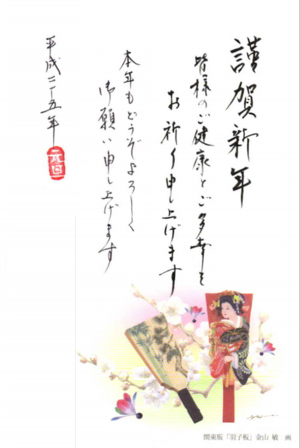 謹賀新年
皆様のご健康とご多幸を
お祈り申し上げます
本年もどうぞよろしく
御願い申し上げます
平成二十五年
元旦
関東版「羽子板」金山 敏 画